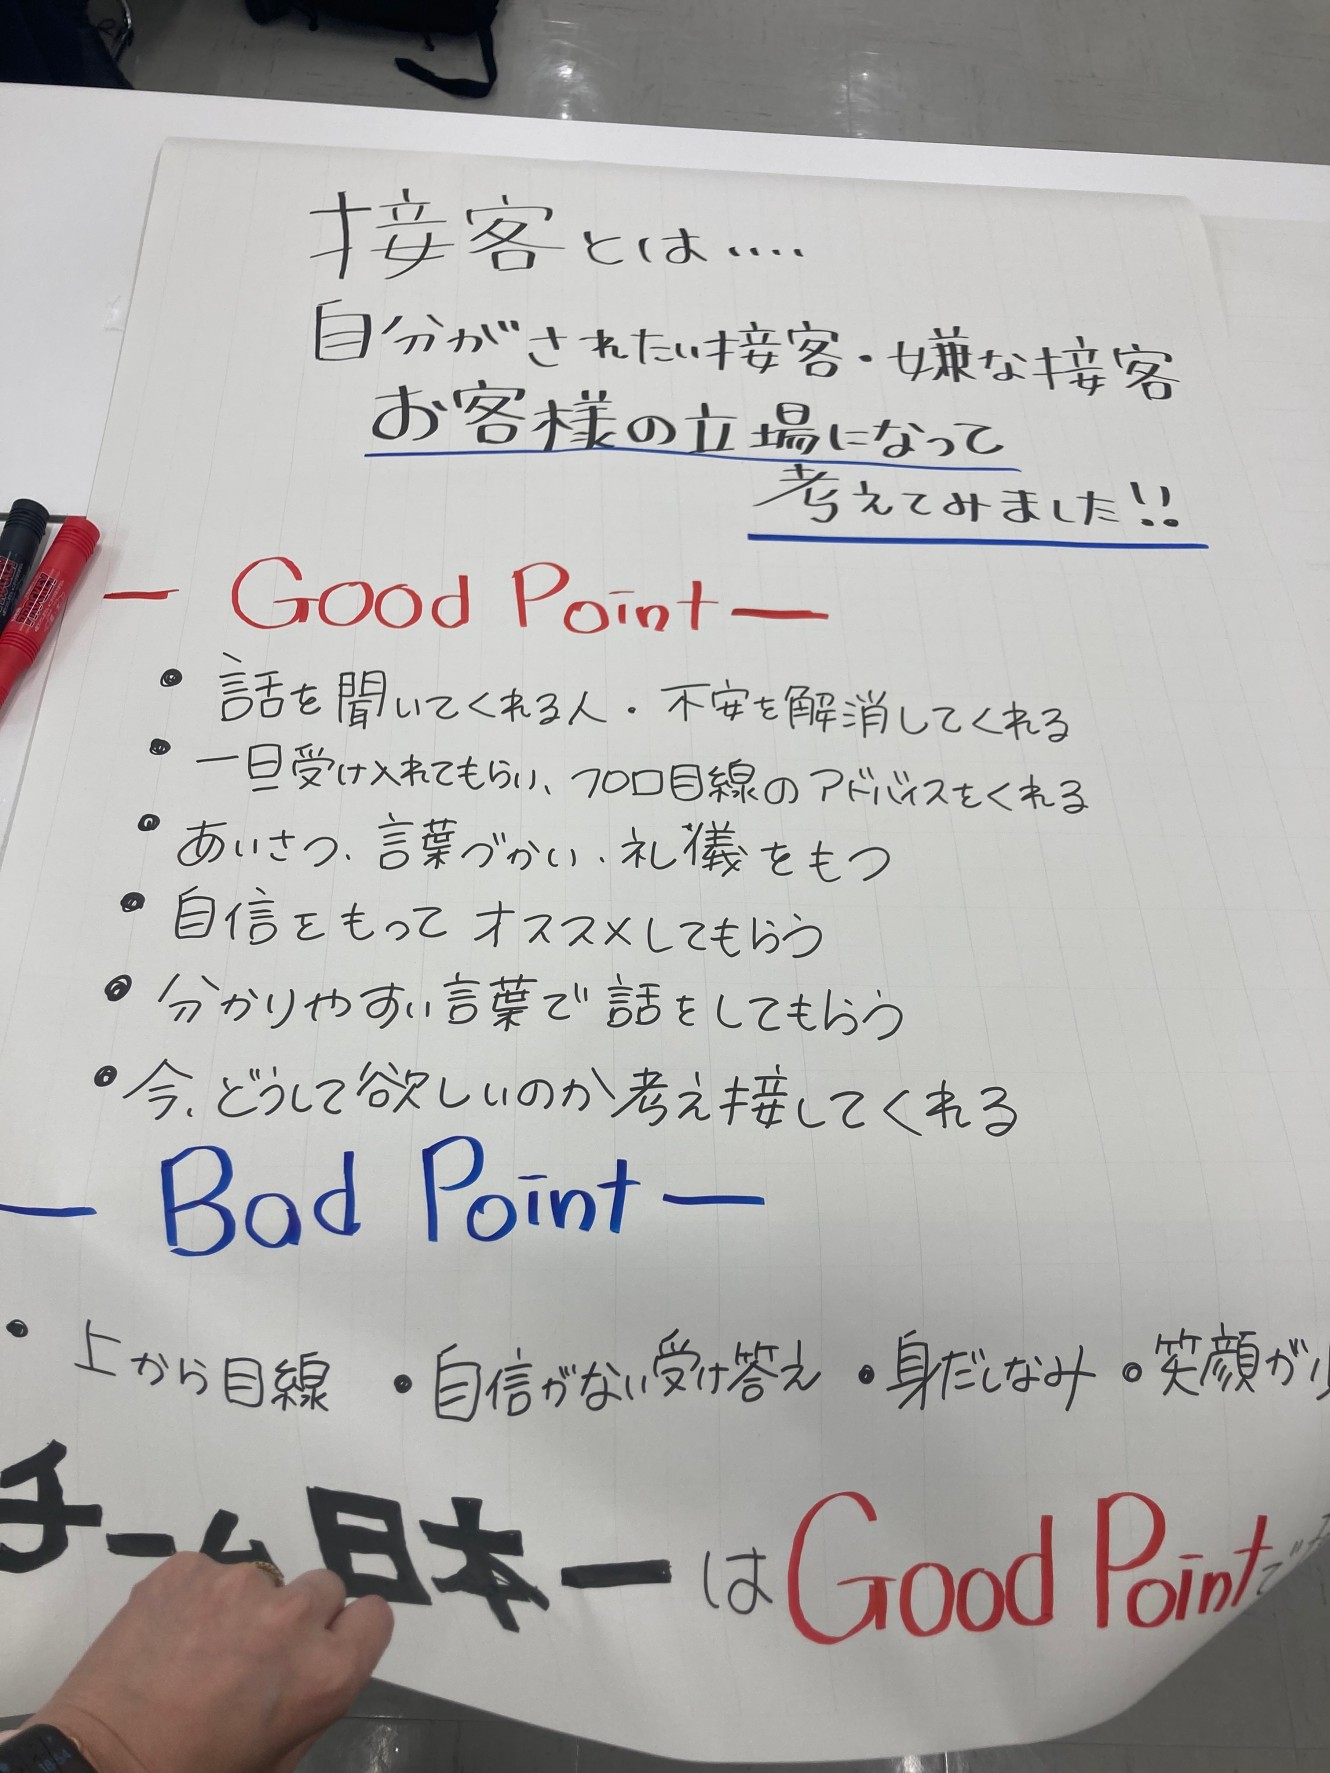 接客とは‥‥
自分がされたい接客・嫌な接客
お客様の立場になって
考えてみました!!
— Good Point —
• 話を聞いてくれる人・不安を解消してくれる
• 一旦受け入れてもらい、プロ目線のアドバイスをくれる
• あいさつ、言葉づかい、礼儀をもつ
• 自信をもって オススメしてもらう
• 分かりやすい言葉で話をしてもらう
• 今、どうして欲しいのか考え接してくれる
— Bad Point —
• 上から目線 • 自信がない受け答え • 身だしなみ • 笑顔が
チーム日本一はGood Pointで